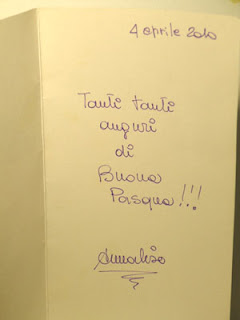 4 aprile 2010
Tanti tanti
auguri
di
Buona
Pasqua!!!
Annalisa